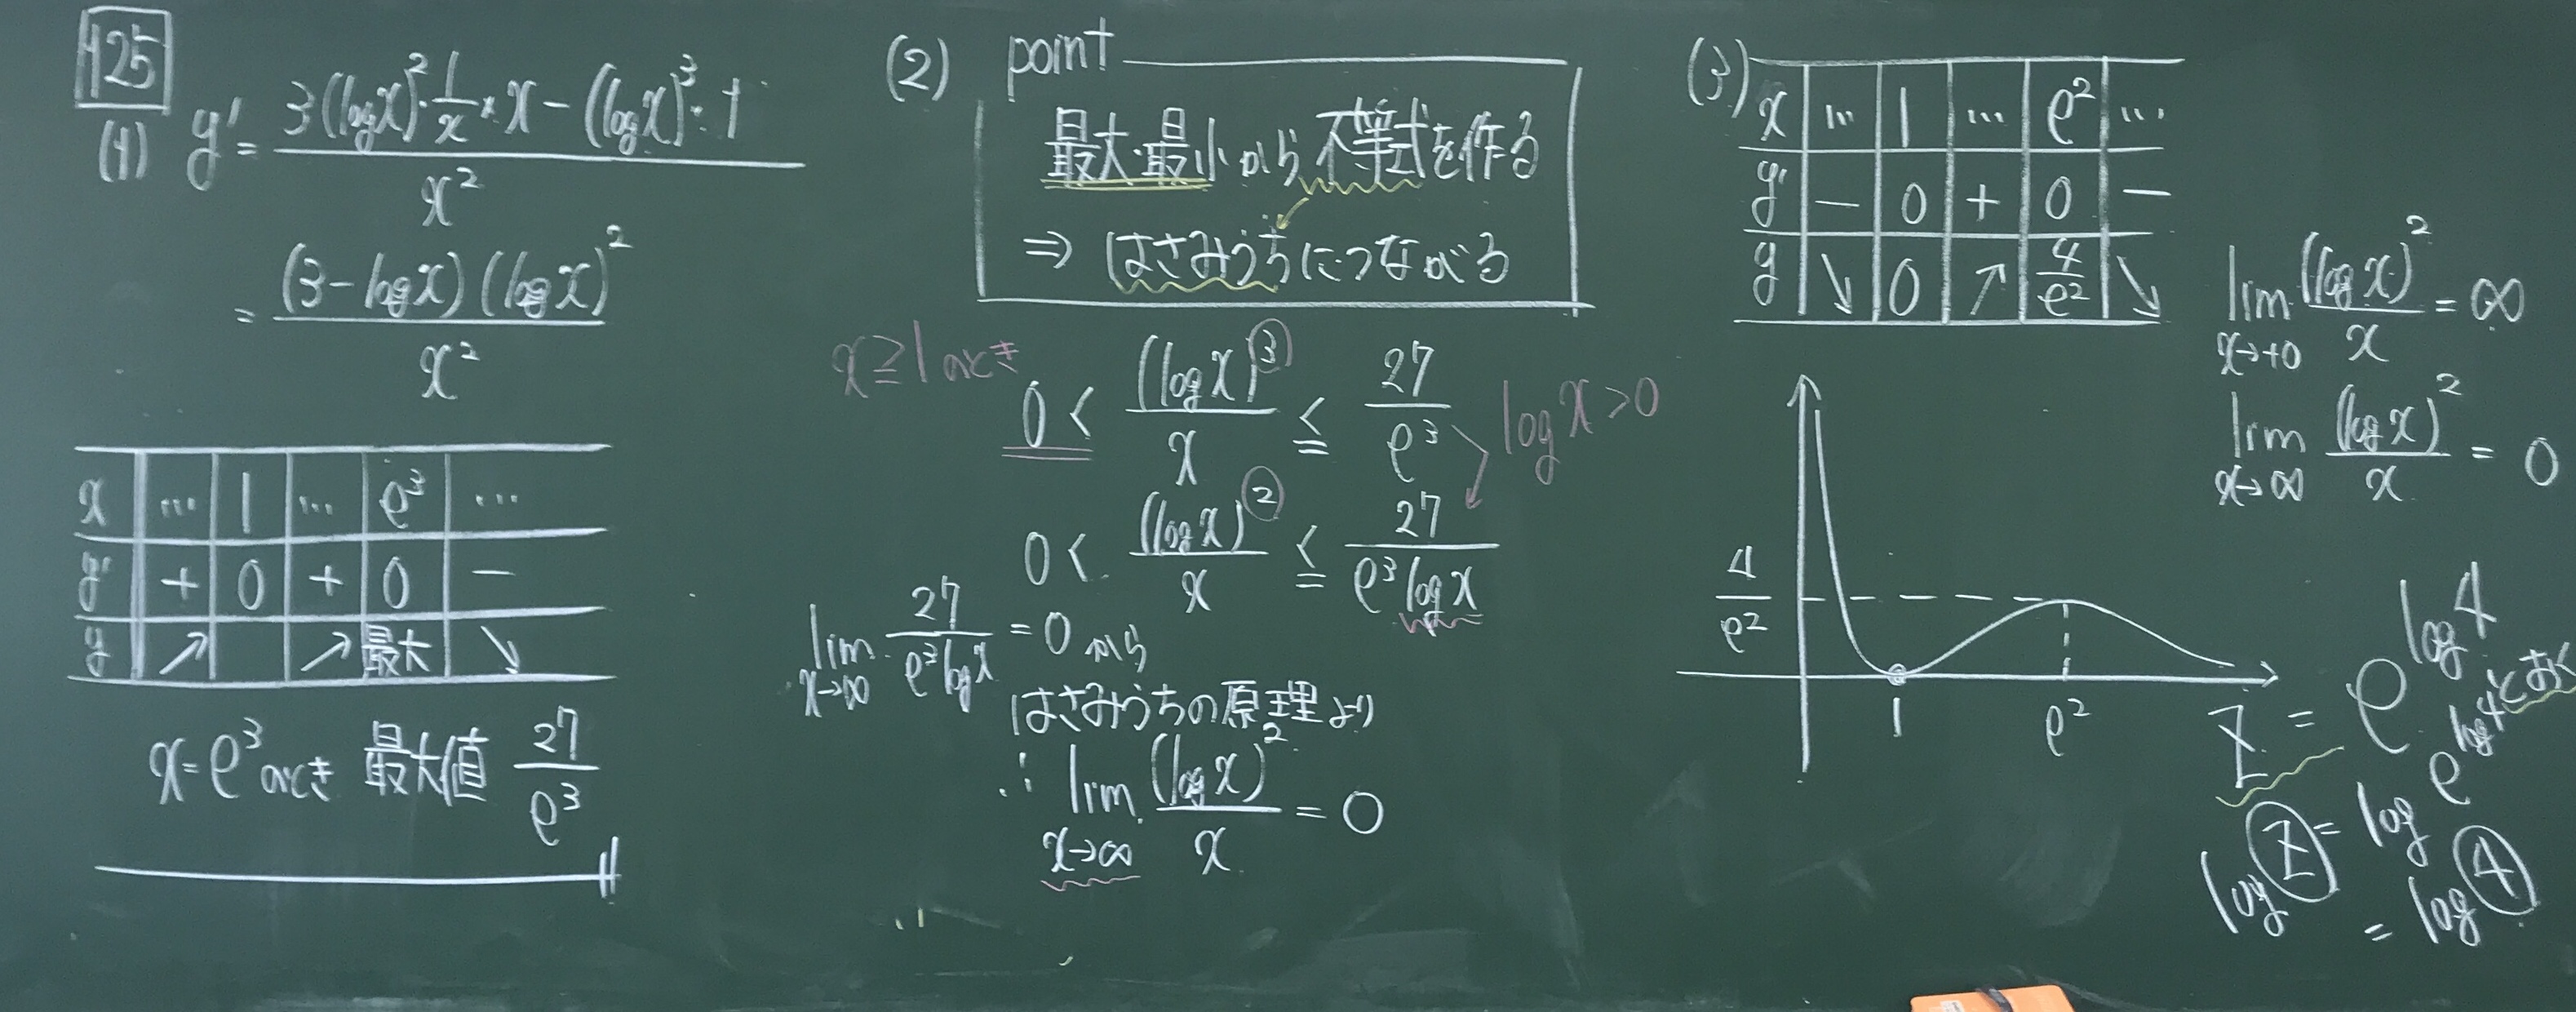 125
(1) y' = 3(log x)²・1/x・x − (log x)³・1 / x²
= (3 − log x)(log x)² / x²
x … 1 … e³ …
y' + 0 + 0 −
y ↗ ↗ 最大 ↘
x = e³ のとき 最大値 27/e³
(2) point
最大・最小から不等式を作る
⇒ はさみうちにつながる
x ≧ 1 のとき
0 < (log x)³/x ≦ 27/e³
log x > 0
0 < (log x)²/x ≦ 27/(e³ log x)
lim x→∞ 27/(e³ log x) = 0 から
はさみうちの原理より
∴ lim x→∞ (log x)²/x = 0
(3)
x … 1 … e² …
y' − 0 + 0 −
y ↘ 0 ↗ 4/e² ↘
lim x→+0 (log x)²/x = ∞
lim x→∞ (log x)²/x = 0
4/e²
1 e²
Z = e^log4 とおく
log Z = log e^log4
= log 4